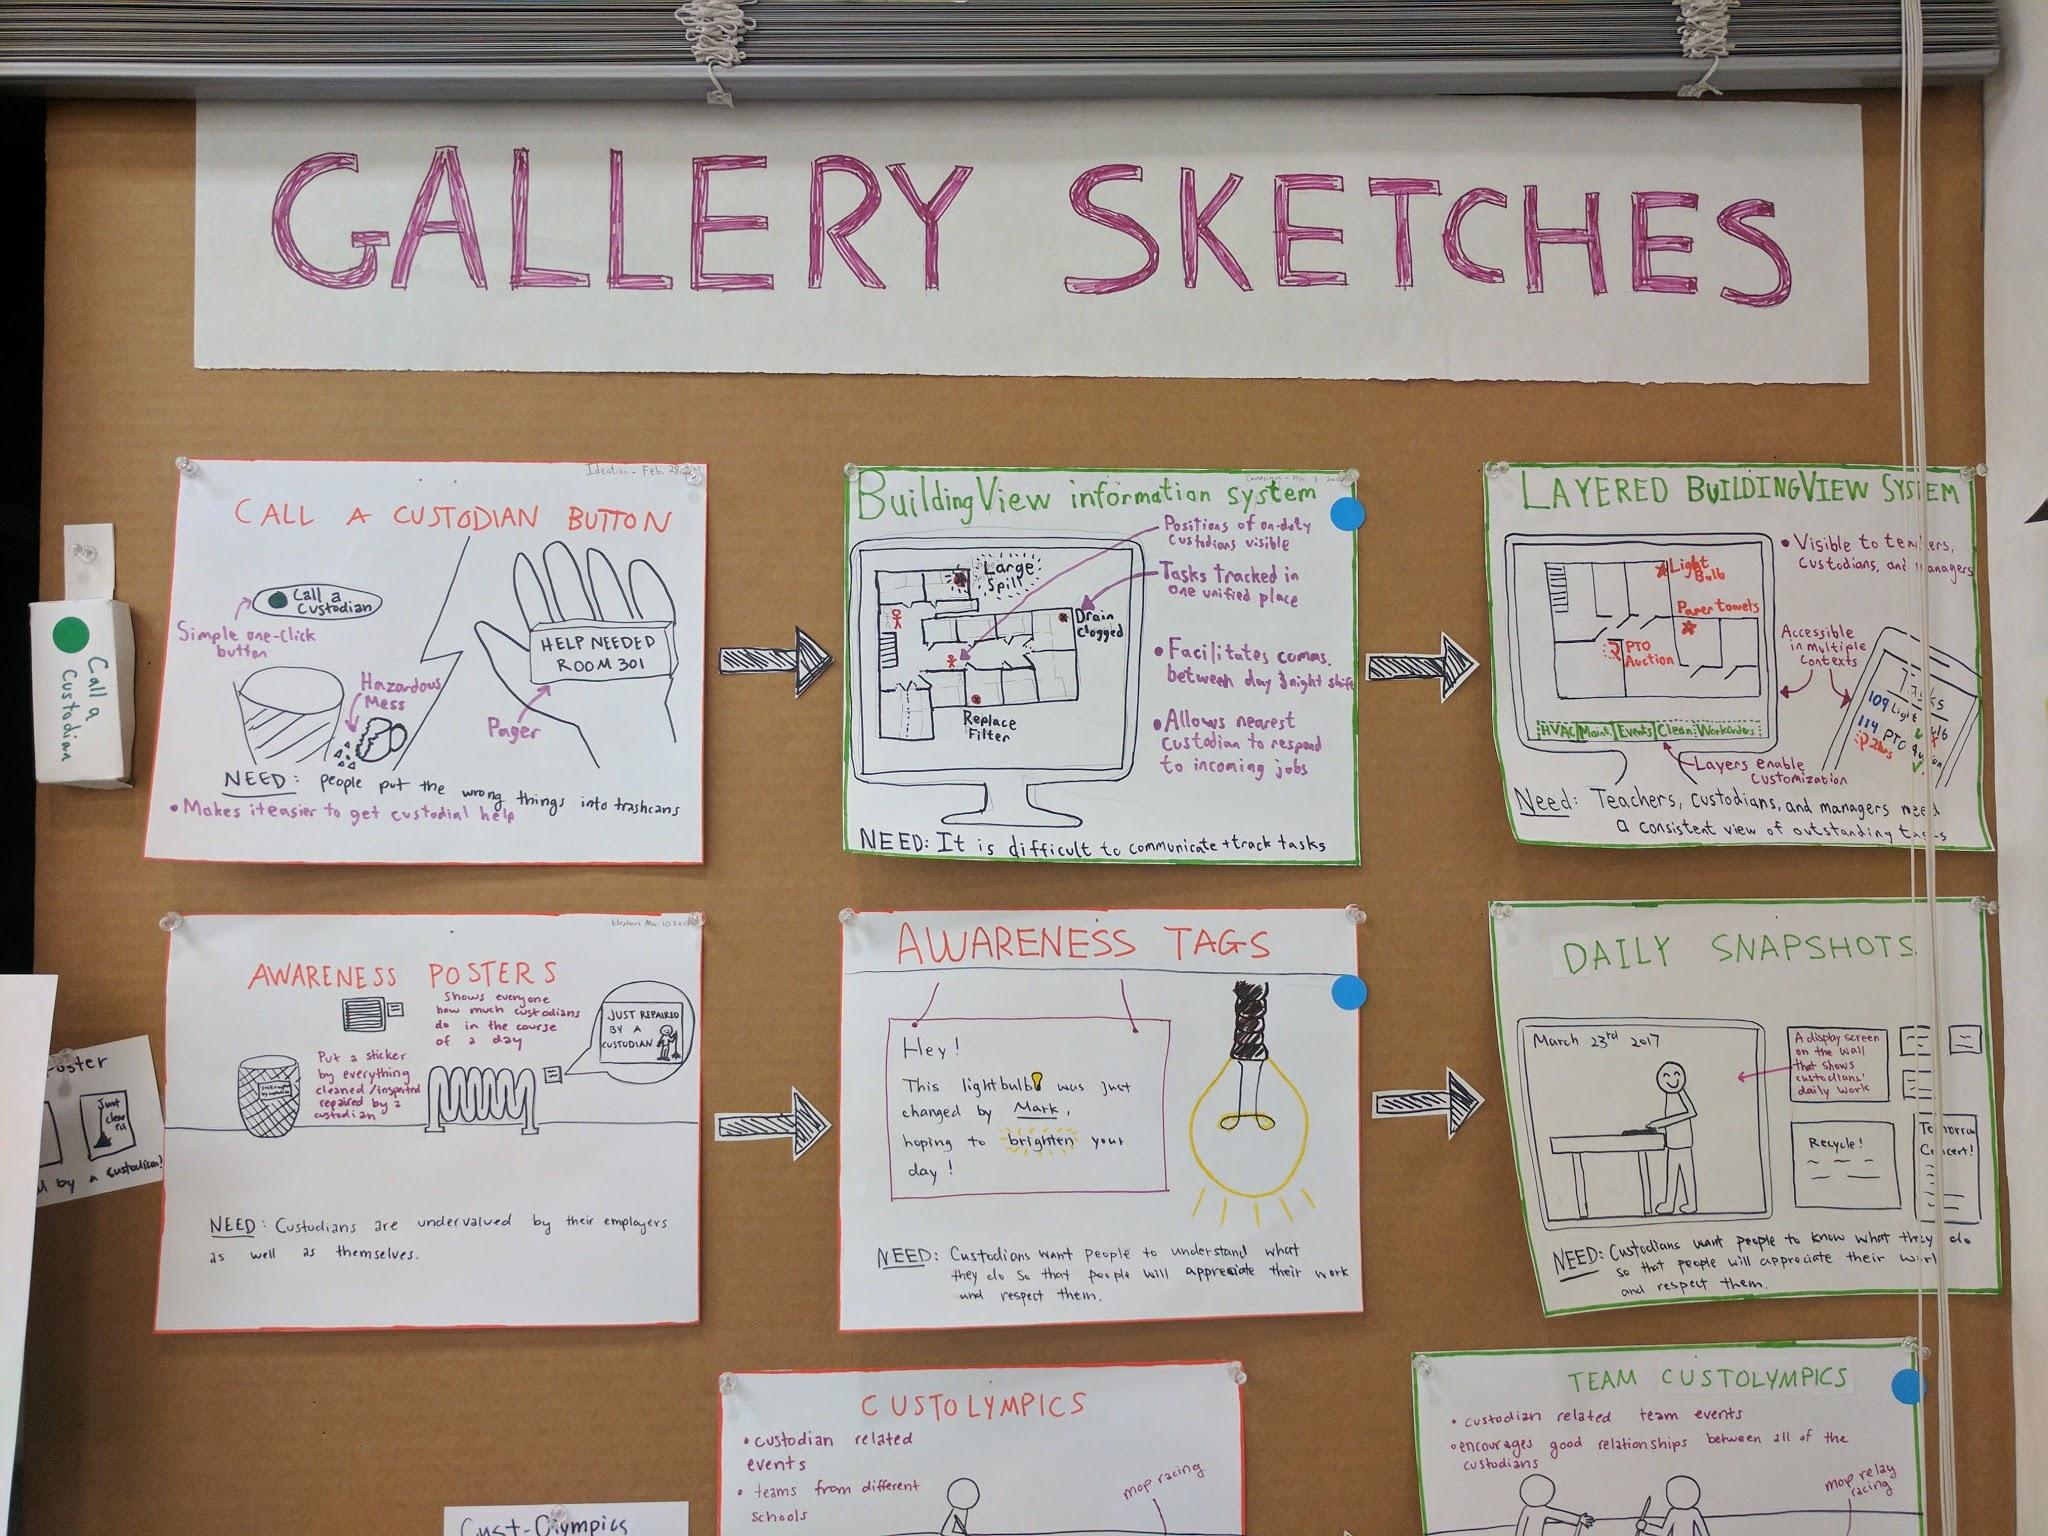 GALLERY SKETCHES
Call a
Custodian
Ideation - Feb. 28
CALL A CUSTODIAN BUTTON
Call a
Custodian
Simple one-click
button
HELP NEEDED
ROOM 301
Hazardous
Mess
Pager
NEED: people put the wrong things into trashcans
• Makes it easier to get custodial help
BuildingView information system
Positions of on-duty
custodians visible
Large
Spill
Tasks tracked in
one unified place
Drain
clogged
• Facilitates comms.
between day & night shift
Replace
Filter
• Allows nearest
custodian to respond
to incoming jobs
NEED: It is difficult to communicate + track tasks
LAYERED BUILDINGVIEW SYSTEM
• Visible to teachers,
custodians, and managers
Light
Bulb
Paper towels
PTO
Auction
Accessible
in Multiple
Contexts
Tasks
109 Light
114 PTO
2hrs
HVAC Maint. Events Clean Workorders
Layers enable
customization
Need: Teachers, custodians, and managers need
a consistent view of outstanding tasks
Ideation Mar. 10 2017
AWARENESS POSTERS
Shows everyone
how much custodians
do in the course
of a day
JUST REPAIRED
BY A
CUSTODIAN
Put a sticker
by everything
cleaned/inspected
repaired by a
custodian
NEED: Custodians are undervalued by their employers
as well as themselves.
Just
clean
ed
by a custodian!
AWARENESS TAGS
Hey!
This lightbulb was just
changed by Mark,
hoping to brighten your
day!
NEED: Custodians want people to understand what
they do so that people will appreciate their work
and respect them.
DAILY SNAPSHOTS
March 23rd 2017
A display screen
on the wall
that shows
custodians'
daily work
Recycle!
Tomorrow
Concert!
NEED: Custodians want people to know what they do
so that people will appreciate their work
and respect them.
CUSTOLYMPICS
• custodian related
events
• teams from different
schools
mop racing
TEAM CUSTOLYMPICS
• custodian related team events
• encourages good relationships between all of the
custodians
mop relay
racing
Cust-Olympics